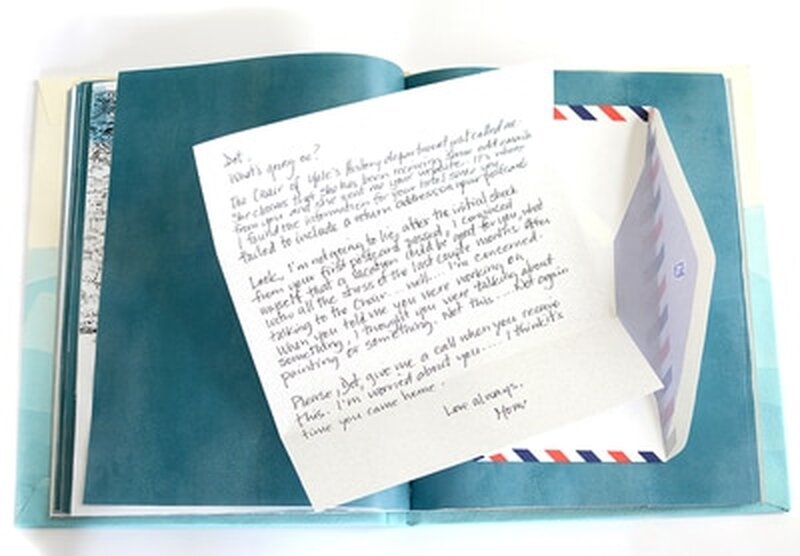 Dot,
What's going on?
The Chair of Yale's History department just called me.
She claims that she has been receiving some odd emails
from you and she gave me your website. It's where
I found the information for your hotel since you
failed to include a return address on your postcard.
Look, I'm not going to lie, after the initial shock
from your first postcard passed, I convinced
myself that a vacation could be good for you, what
with all the stress of the last couple months. After
talking to the Chair.... well.... I'm concerned.
When you told me you were working on
something, I thought you were talking about
painting or something. Not this.... Not again
Please, Dot, give me a call when you receive
this. I'm worried about you.... I think it's
time you came home.
Love always,
Mom